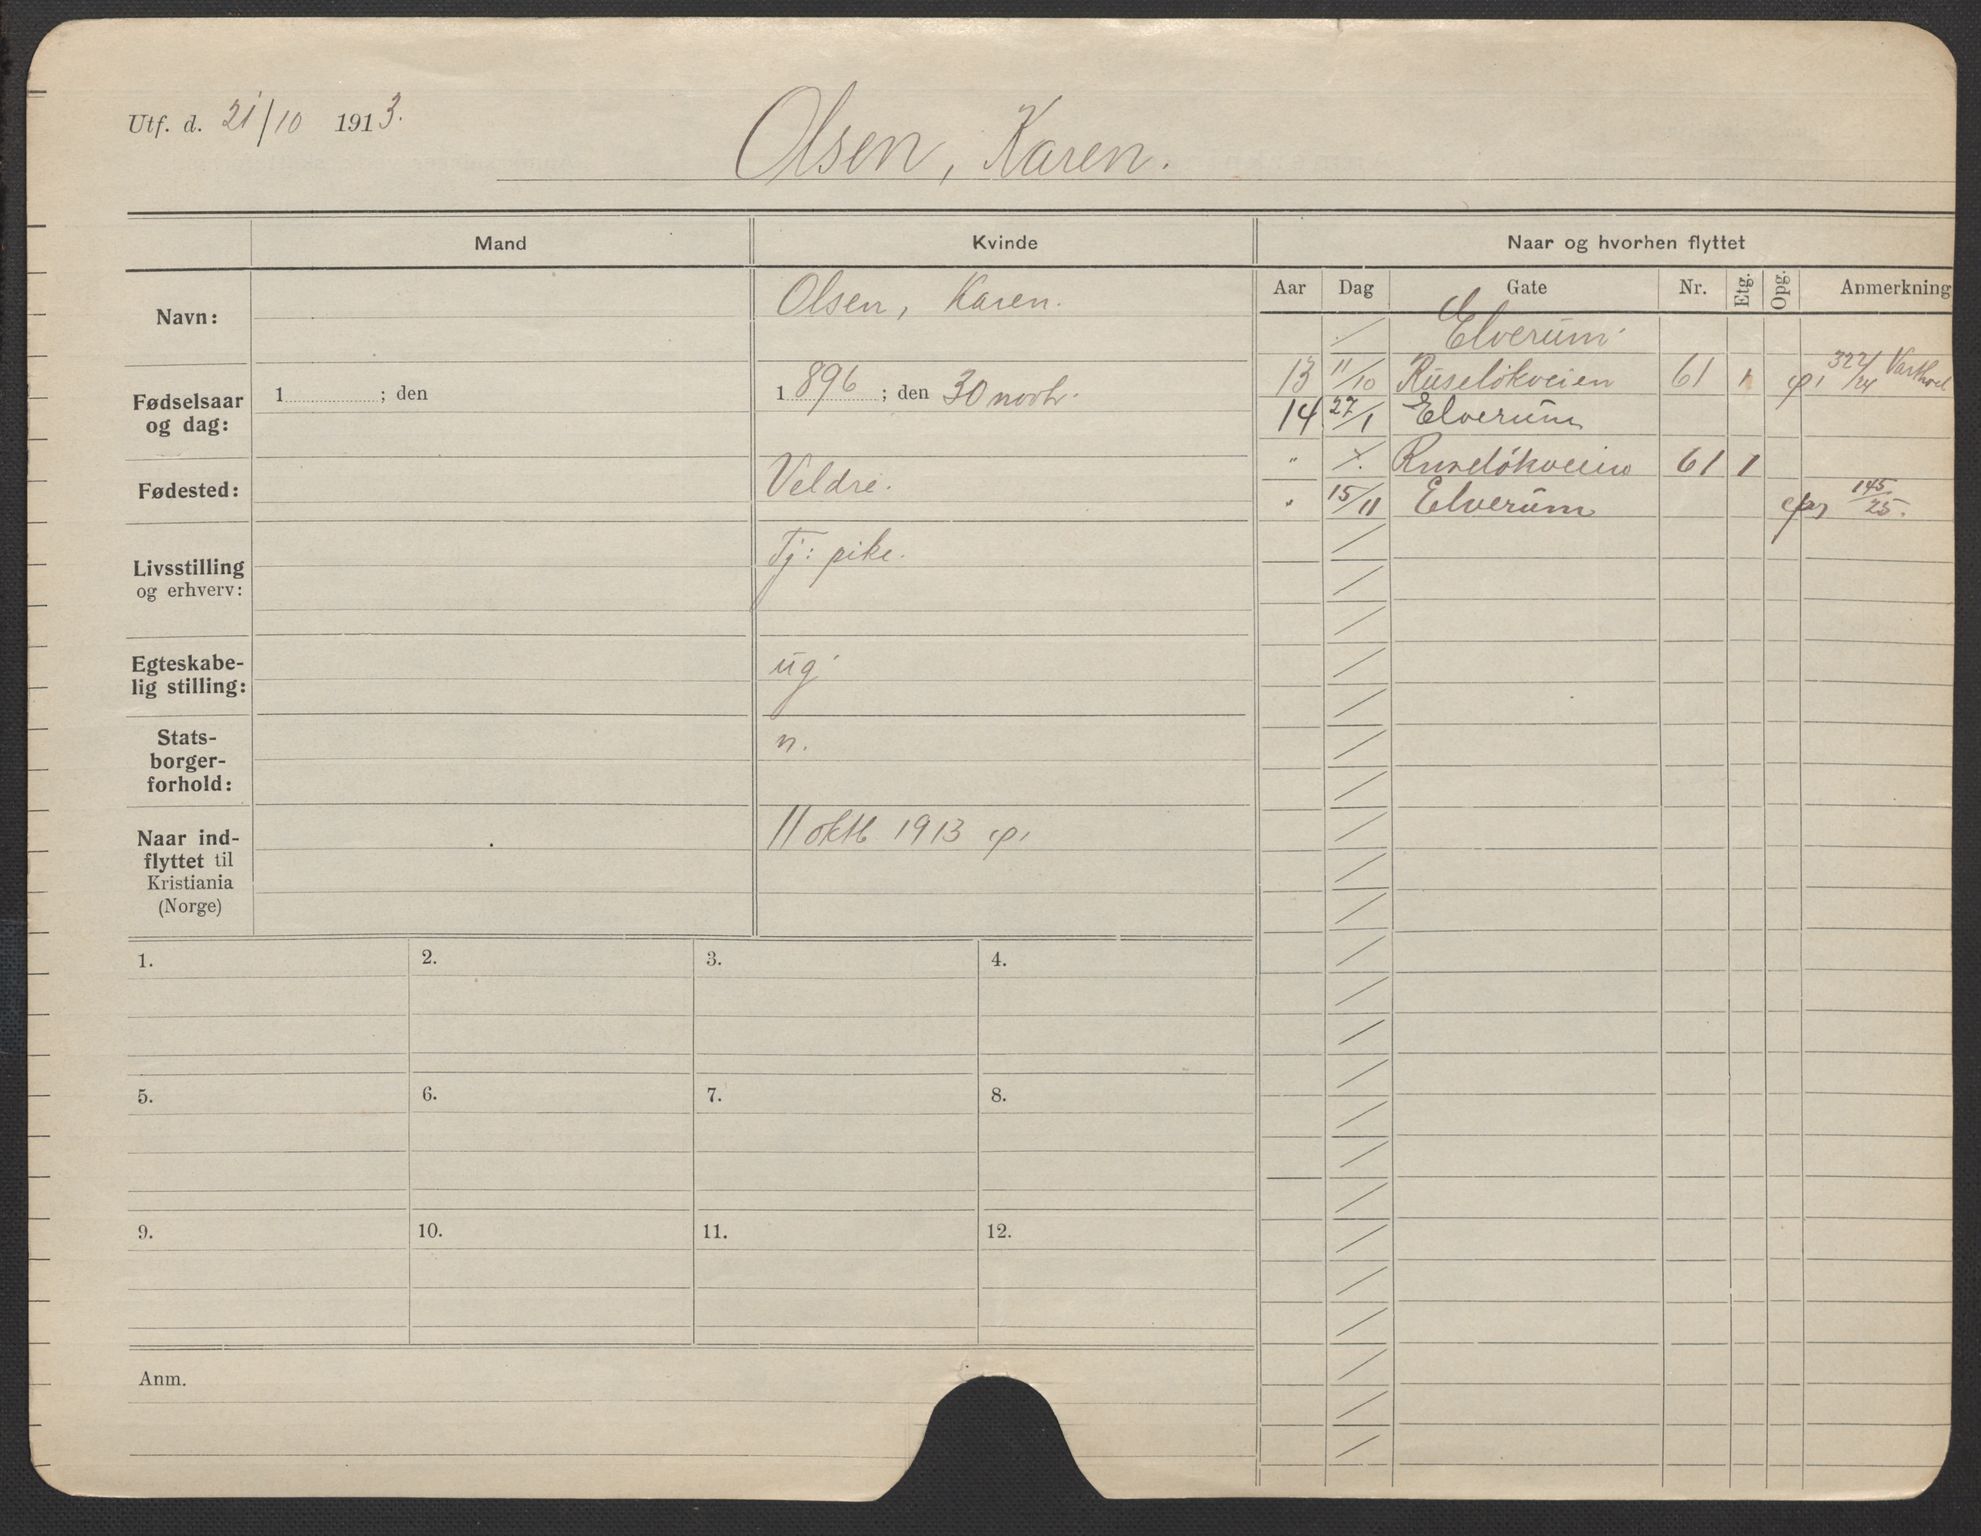 Utf. d. 21/10 1913.
Olsen, Karen.
Mand Kvinde Naar og hvorhen flyttet
Aar Dag Gate Nr. Etg. Opg. Anmerkning
Navn: Olsen, Karen.
Fødselsaar og dag: 1 ; den 1896 ; den 30 novbr.
Fødested: Veldre.
Livsstilling og erhverv: Tj: pike.
Egteskabe-
lig stilling: ug
Stats-
borger-
forhold: n.
Naar ind-
flyttet til
Kristiania
(Norge) 11 oktb 1913
Elverum
13 11/10 Ruseløkveien 61 1
14 27/1 Elverum
" Ruseløkveien 61 1
" 15/11 Elverum 145/25.
1. 2. 3. 4.
5. 6. 7. 8.
9. 10. 11. 12.
Anm.